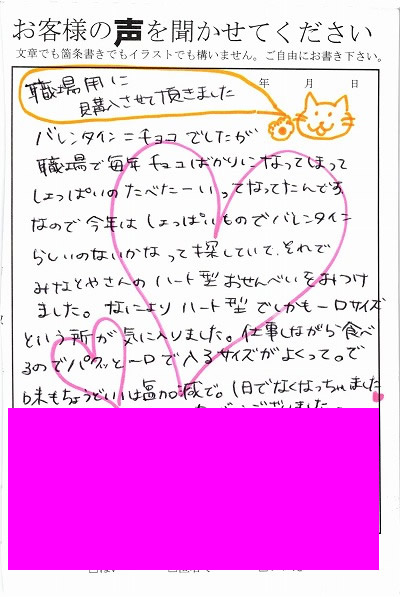 お客様の声を聞かせてください
文章でも箇条書きでもイラストでも構いません。ご自由にお書き下さい。
年 月 日
職場用に
購入させて頂きました
バレンタイン=チョコでしたが
職場で毎年チョコばかりになってしまって
しょっぱいのたべたーいってなってたんです
なので今年はしょっぱいものでバレンタイン
らしいのないかなって探していて、それで
みなとやさんのハート型おせんべいをみつけ
ました。なによりハート型でしかも一口サイズ
という所が気に入りました。仕事しながら食べ
るのでパクッと一口で入るサイズがよくって。で
味もちょうどいい塩加減で。1日でなくなっちゃいました